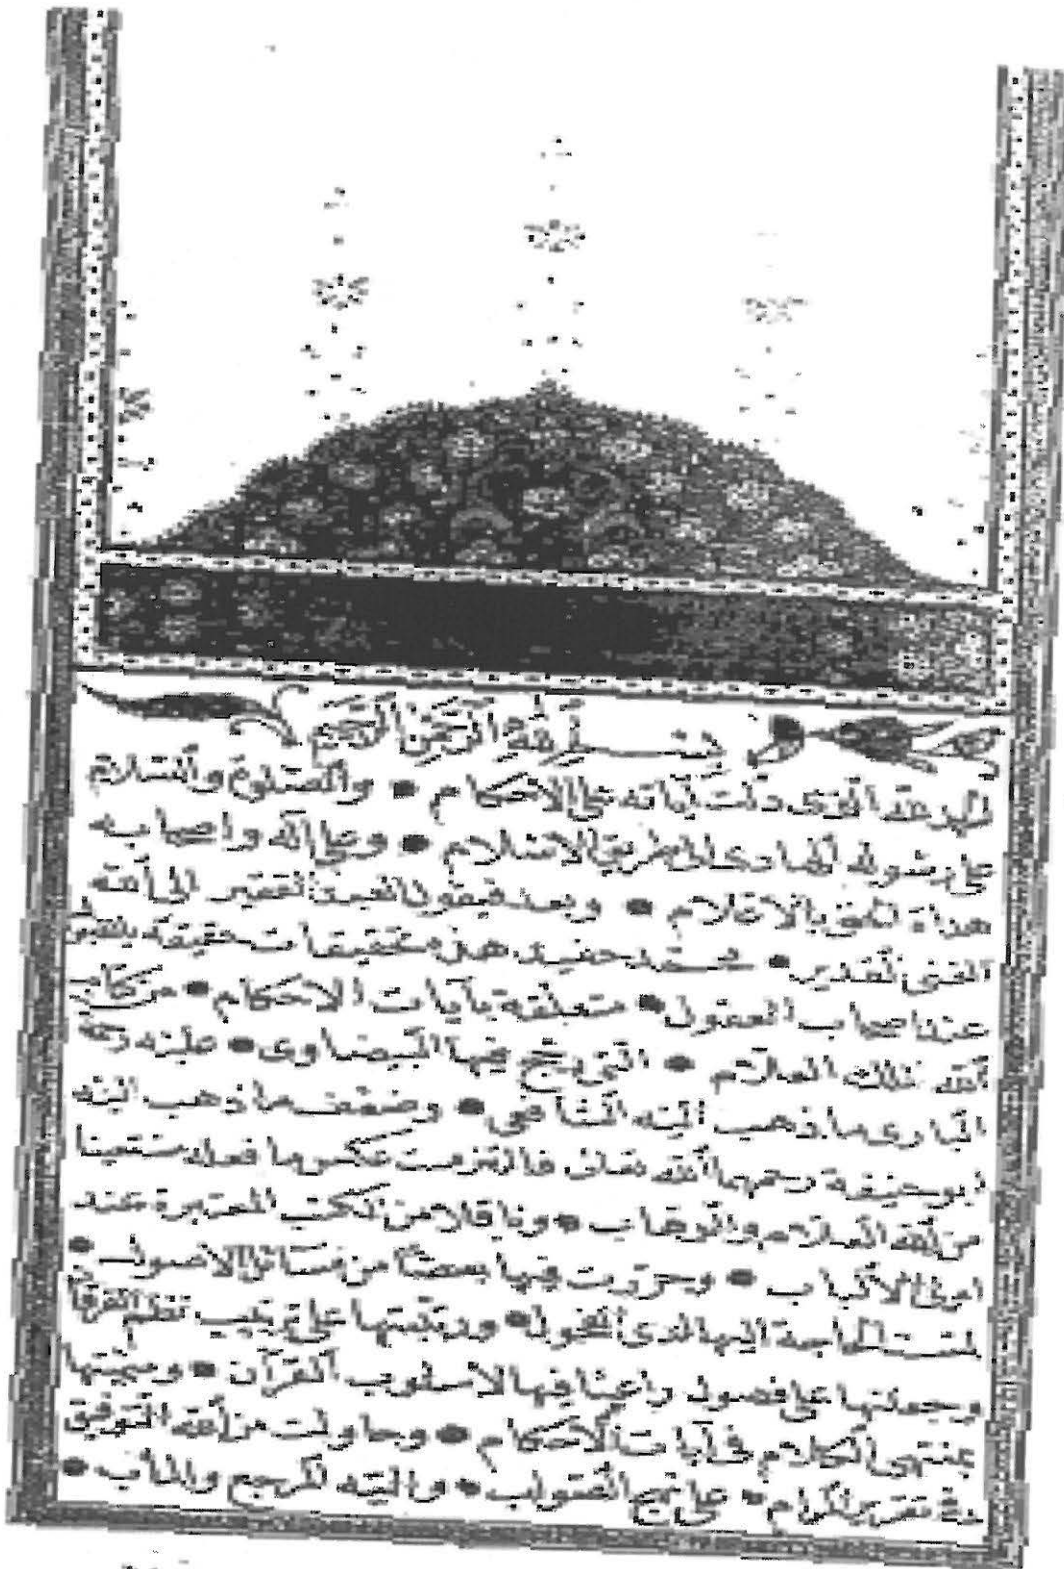 بسم الله الرحمن الرحيم
الحمد لله الذي دلت آياته على الاحكام • والصلوة والسلام
على رسوله الهادى الى طريق الاسلام • وعلى آله واصحابه
هداة الخلق بالاعلام • وبعد فيقول العبد الفقير الى الله
الغنى القدير • محمد حفيد هذه تحقيقات حقيقة بالقبول
عند اصحاب العقول • متعلقة بآيات الاحكام • من كتاب
الله الملك العلام • التى رجح فيها البيضاوى • عليه رحمة
البارى ما ذهب اليه الشافعى • وضعف ما ذهب اليه
ابو حنيفة رحمهما الله تعالى فالتزمت عكس ما فعله مستعينا
من الله العلام والوهاب • وناقلا من الكتب المعتبرة عند
اولى الالباب • وحررت فيها بعضا من مسائل الاصول •
لمست الحاجة اليها لدى الفحول • ورتبتها على ترتيب نظم الفرقان
وجعلتها على فصول راعيا فيها لاسلوب القرآن • وسميتها
بمنتهى الكلام فى آيات الاحكام • وحاولت من الله التوفيق
فى تقرير المرام • على نهج الصواب • واليه المرجع والمآب •